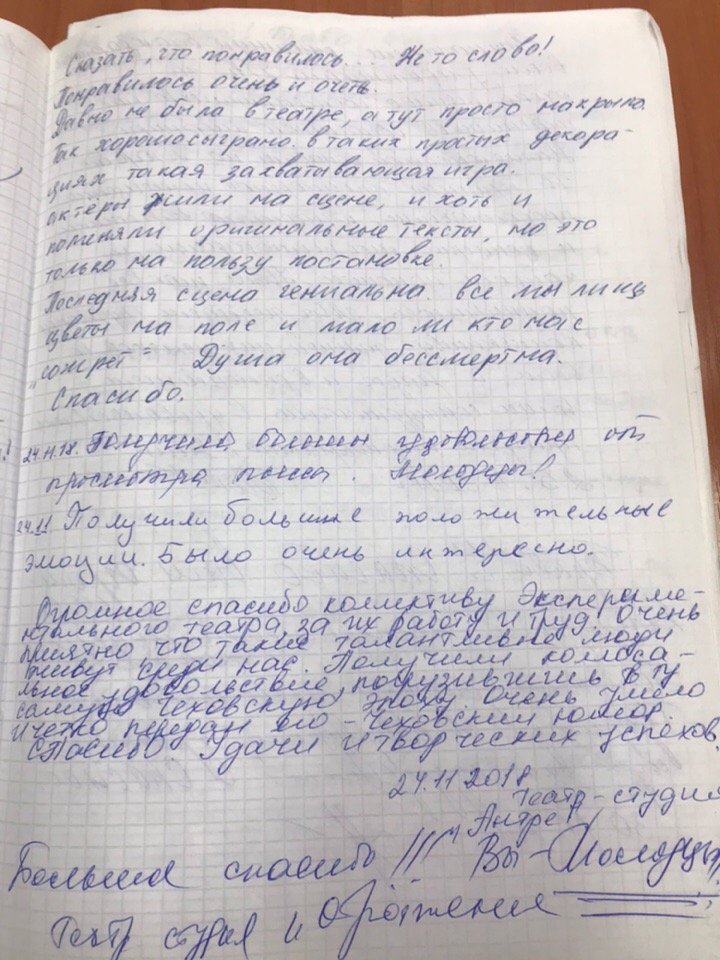 Сказать, что понравилось... Не то слово!
Понравилось очень и очень.
Давно не была в театре, а тут просто накрыло.
Так хорошо сыграно. в таких простых декора-
циях такая захватывающая игра.
актёры жили на сцене, и хоть и
поменяли оригинальные тексты, но это
только на пользу постановке.
Последняя сцена гениальна. все мы лишь
цветы на поле и мало ли кто нас
"сожрет" Душа она бессмертна.
Спасибо.
24.11.18. Получила больше удовольствия от
просмотра пьесы. Молодцы!
24.11 Получили большие положительные
эмоции. Было очень интересно.
Огромное спасибо коллективу Эксперме-
нтального театра за их работу и труд. Очень
приятно что такие талантливые люди
живут среди нас. Получили колоса-
льное удовольствие, погрузившись в ту
самую Чеховскую эпоху. Очень умело
и четко передан его - Чеховский юмор.
Спасибо Удачи и творческих успехов.
24.11 2018
Театр-студия
"Антре"
Большое спасибо !!! Вы - Молодцы
Театр студия и Отражение